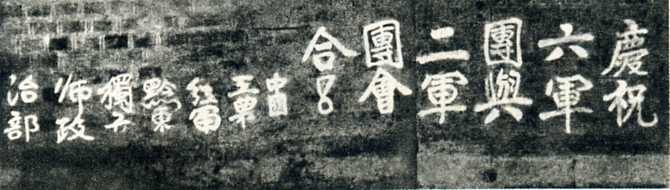 慶祝
六軍
團與
二軍
團會
合
中國
工農
紅軍
黔東
獨立
師政
治部